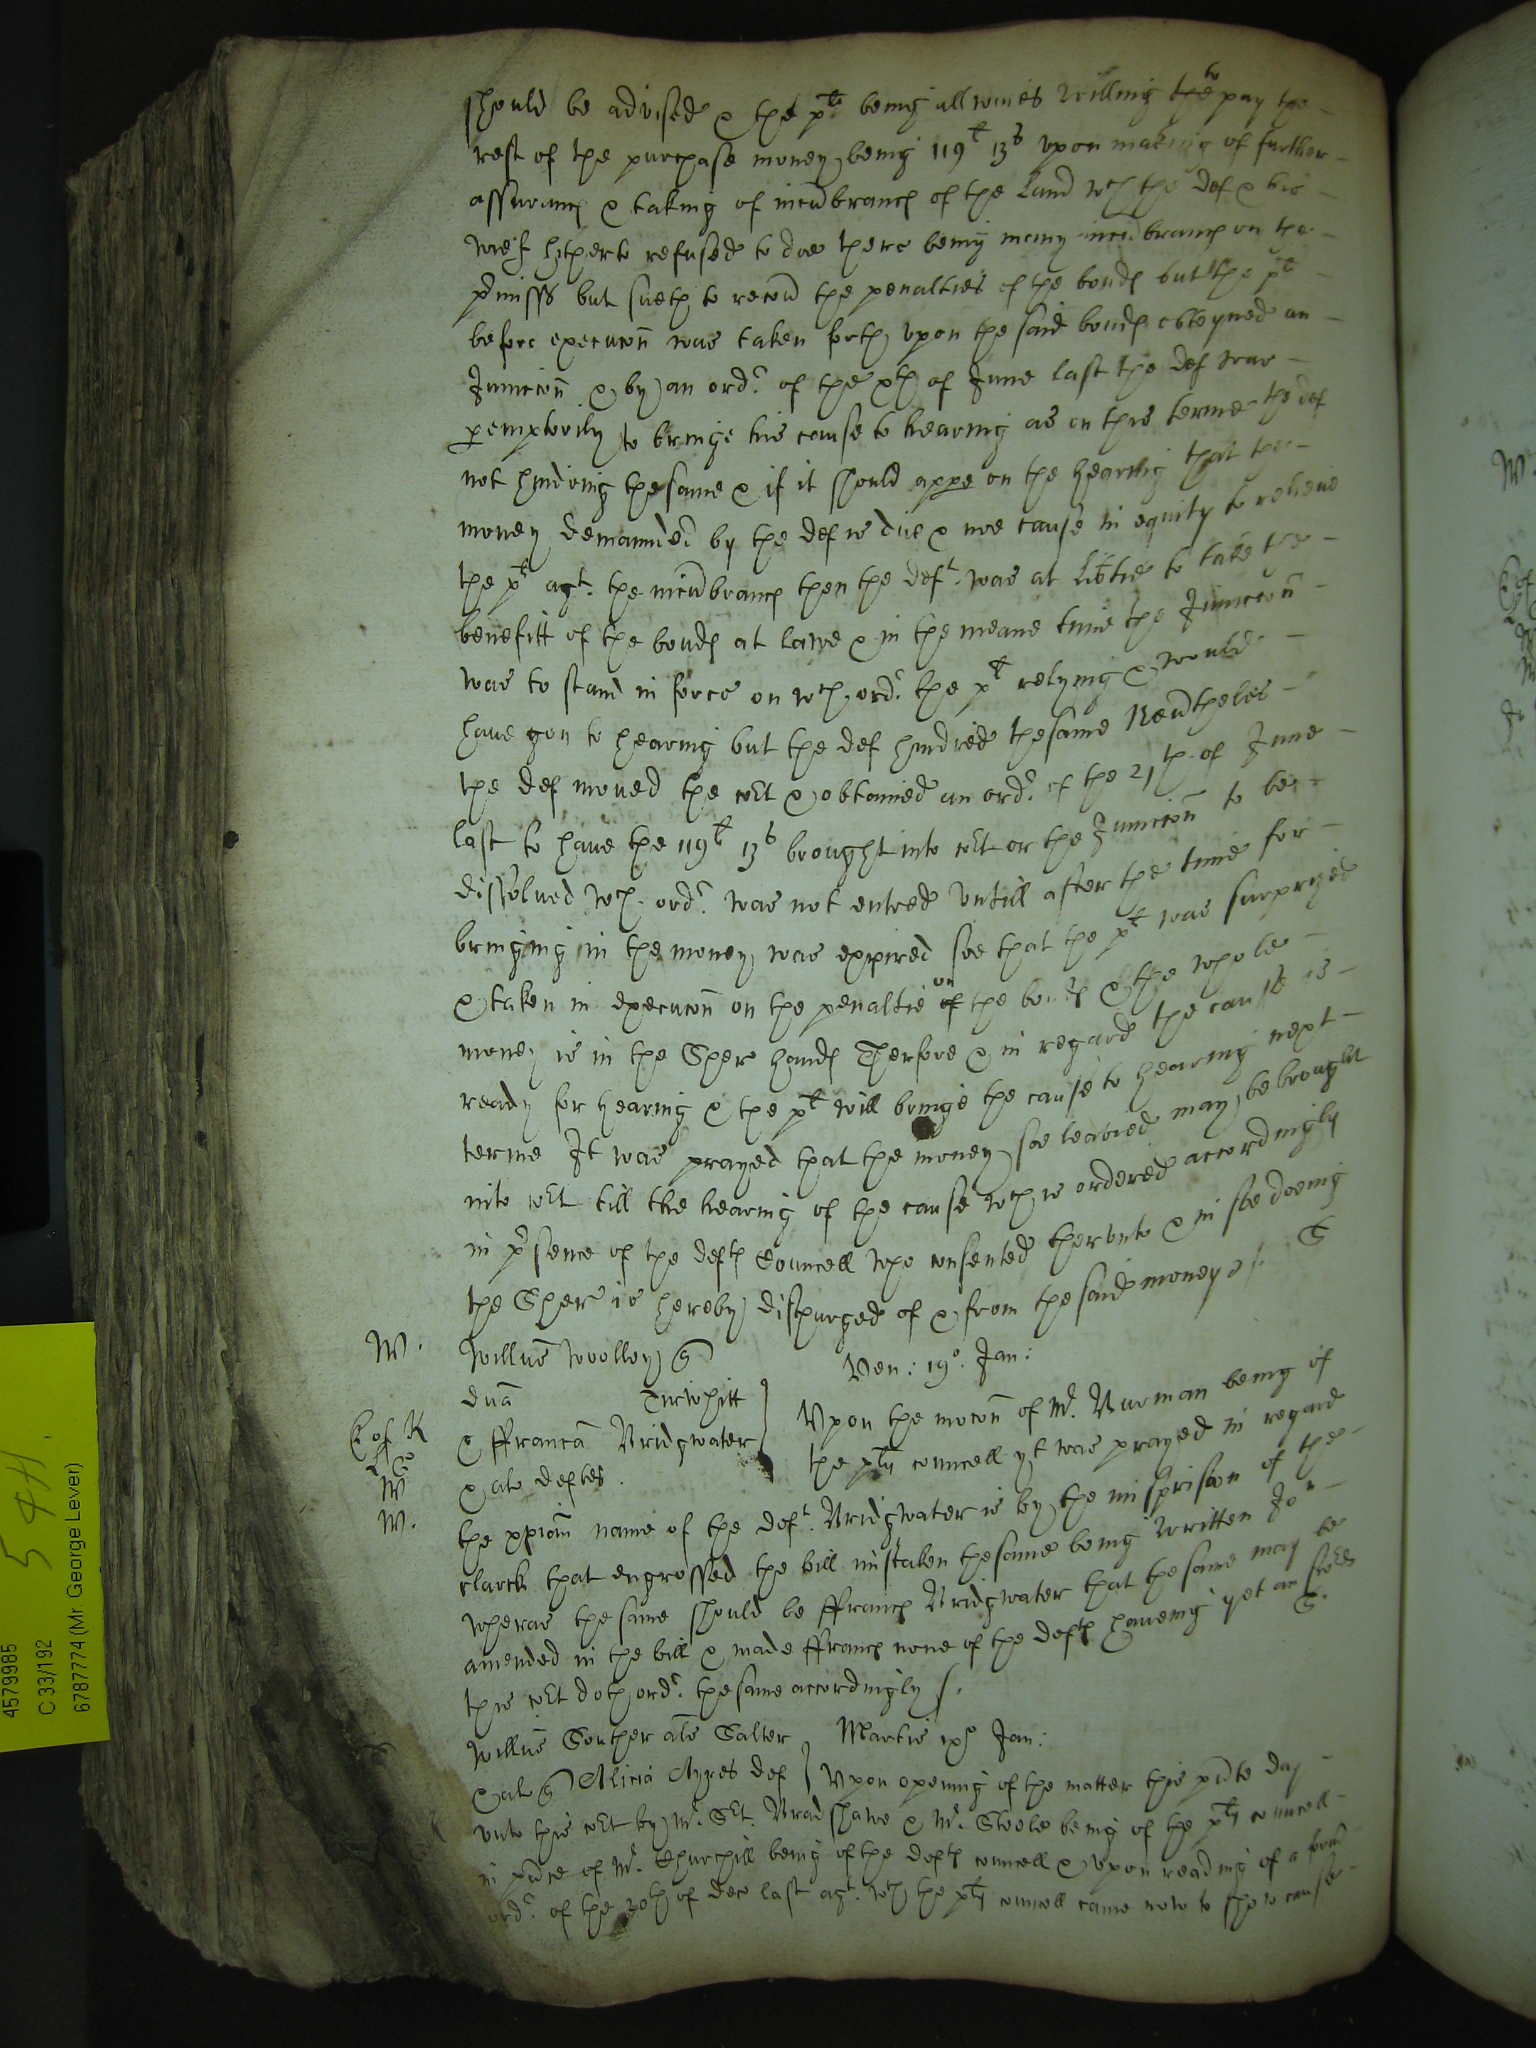 should be advised & the plt being all times willing the to pay the
rest of the purchase money being 119l 13s upon making of further
assurance & taking of incūbrances of the Land wch the def & his
wief hitherto refused to doe there being many incūbrances on the
p̄misss but sueth to recoū the penalties of the bondes but the plt
before execucōn was taken forth upon the said bondes obteyned an
Iniuncc̄on & by an ordr of the xth of June last the def was
peremptorily to bringe his cause to hearing as on this terme the def
not hindring the same & if it should appe on the hearing that the
money demaunded by the def is due & noe cause in equity to releive
the plt agt the incūbrances then the deft was at libtie to take the
benefitt of the bondes at lawe & in the meane time the Iniuncc̄on
was to stand in force on wch ordr the plt relying & would
have gon to hearing but the def hindred the same Neūtheles
the def moved the cōt & obtained an ordr of the 21th of June
last to have the 119l 13s brought into cōt or the Iniuncc̄on to bee
dissolved wch ordr was not entred untill after the time for
bringing in the money was expired soe that the plt was surprized
& taken in execucōn on the penaltie of on the bondes & the whole
money is in the Sher handes Therfore & in regard the cause is
ready for hearing & the plt will bringe the cause to hearing next
terme It was prayed that the money soe leavied may be brought
into cōt till the hearing of the cause wch is ordered accordingly
in p̄sence of the deftes Councell who consented therunto & in soe doeing
the Sher is hereby discharged of & from the said money
S
W.
Willūs Woolley
Ven: 19o. Jan:
Tirwhitt
& ffrancā Bridgwater
& al's deftes.
Upon the mocōn of Mr. Burman being of
the pltes councell yt was prayed in regard
W
W.
the xpian name of the deft. Bridgwater is by the misprision of the
clarke that engrossed the bill mistaken the same being written Jon
wheras the same should be ffrances Bridgwater that the same may be
amended in the bill & made ffrances none of the deftes haveing yet answered
this cōt doth ordr. the same accordingly
S.
Willūs Souther al's Salter
Martis ixo Jan:
& al Alicia Ayres def
Upon opening of the matter this p̄nte day
unto this cōt by Mr. Sēt. Bradshawe & Mr. Steele being of the pltes councell
in p̄nce of Mr. Churchill being of the deftes councell & upon reading of a form
ordr. of the 30th of Dec last agt. wch the pltes councell came now to shew cause
4579985
C 33/192
6787774 (Mr. George Lever)